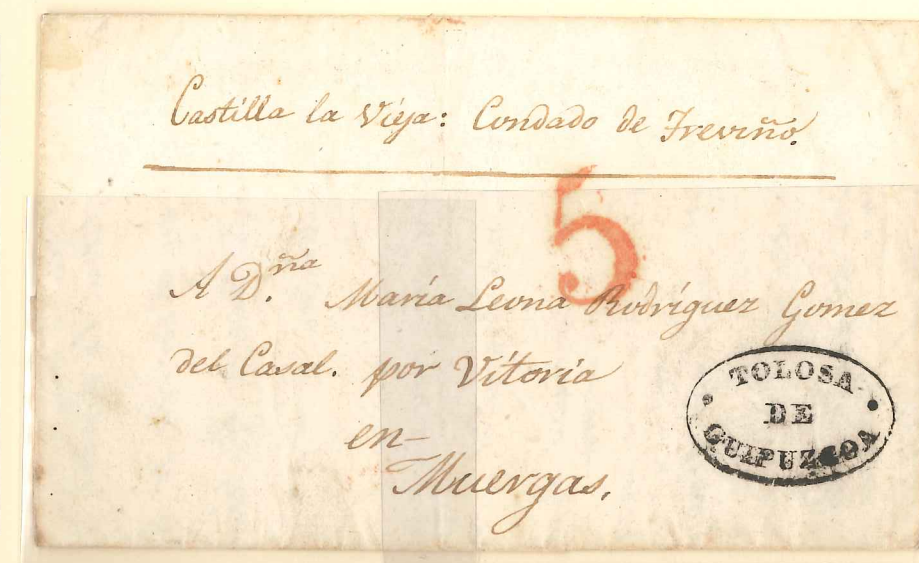 Castilla la Vieja: Condado de Treviño.
5
A D.ña María Leona Rodríguez Gomez
del Casal. por Vitoria
en
Muergas.
TOLOSA
DE
GUIPUZCOA